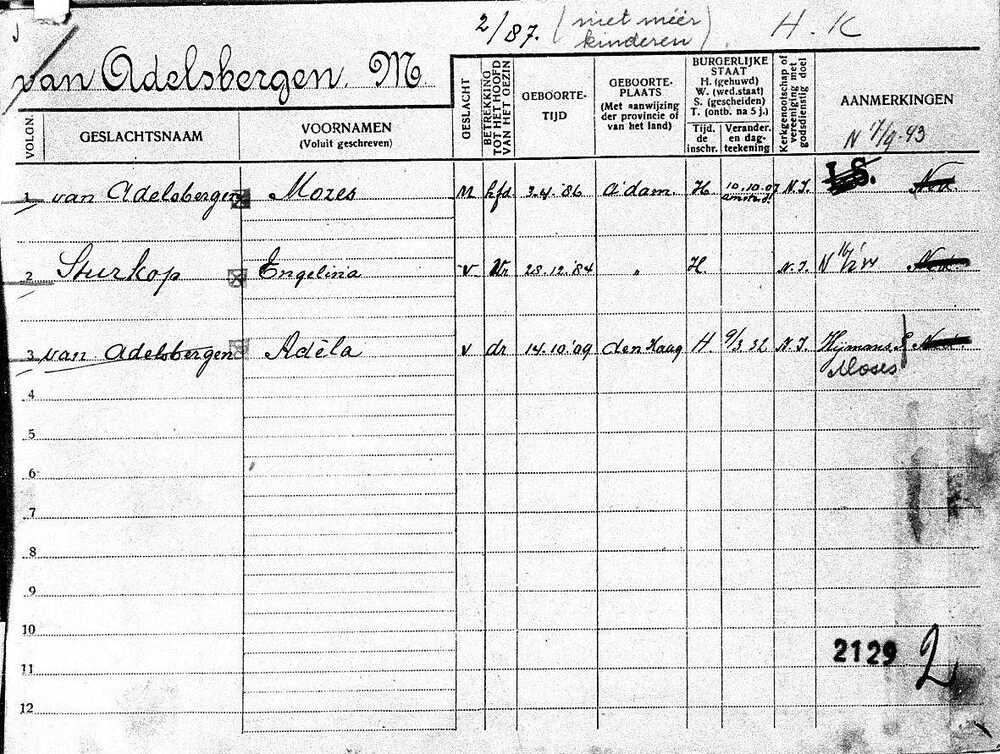 2/87. (niet méér kinderen). H. K
van Adelsbergen. M.
VOLGN. GESLACHTSNAAM VOORNAMEN (Voluit geschreven) GESLACHT BETREKKING TOT HET HOOFD VAN HET GEZIN GEBOORTE-TIJD GEBOORTE-PLAATS (Met aanwijzing der provincie of van het land) BURGERLIJKE STAAT H. (gehuwd) W. (wed.staat) S. (gescheiden) T. (ontb. na 5 j.) Tijd. de inschr. Verander. en dag-teekening Kerkgenootschap of vereeniging met godsdienstig doel AANMERKINGEN
N 17/9-43
1 van Adelsbergen Mozes M hfd 3.4.'86 A'dam. H 10.10.07 N.I. L.S.
2 Sturkop Engelina v Vr 28.12.'84 " H. N.I. N 16/
3 van Adelsbergen Adèla v dr 14.10.'09 den Haag H. 9/3 32 N.I. Hijmans, S
Moses
4
5
6
7
8
9
10
11
12
2129 2